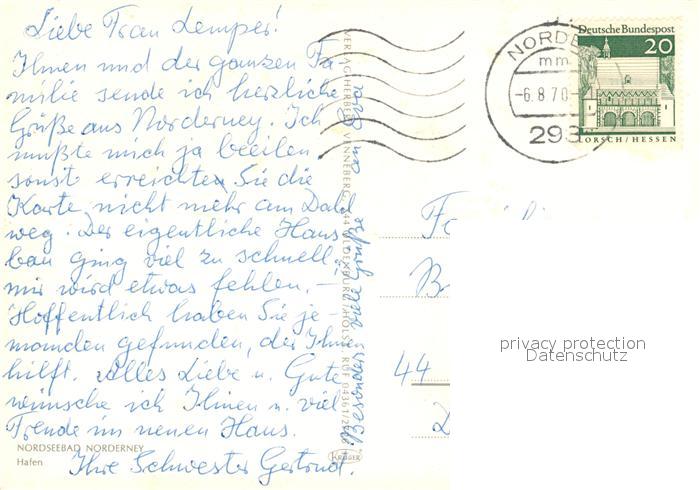 Liebe Frau Lemper!
Ihnen und der ganzen Fa
milie sende ich herzliche
Grüße aus Norderney. Ich
mußte mich ja beeilen
sonst erreichten Sie die
Karte nicht mehr am Dahl
weg. Der eigentliche Haus
bau ging viel zu schnell.
mir wird etwas fehlen. –
Hoffentlich haben Sie je-
manden gefunden, der Ihnen
hilft. Alles Liebe u. Gute
wünsche ich Ihnen u. viel
Freude im neuen Haus.
Ihre Schwester Gertrud.
Besonders viele Grüße an
NORDSEEBAD NORDERNEY
Hafen
VERLAG HERBERT VENNEBERG
RUF 04361/
KRÜGER
Deutsche Bundespost
20
LORSCH/HESSEN
NORDE
mm
-6.8.70
298
44
privacy protection
Datenschutz